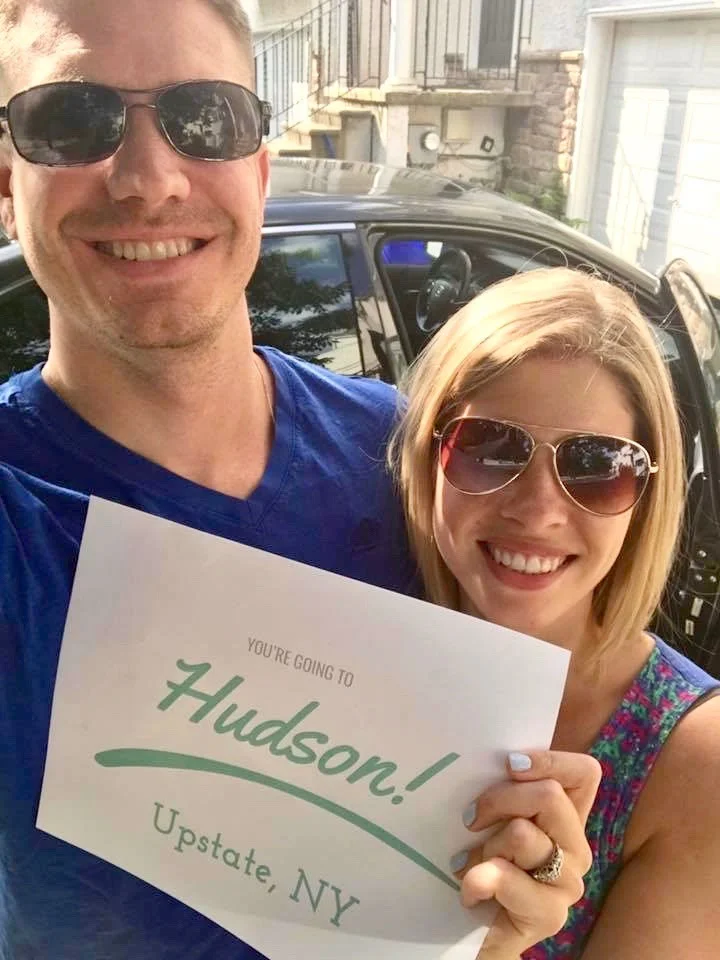 YOU'RE GOING TO
Hudson!
Upstate, NY